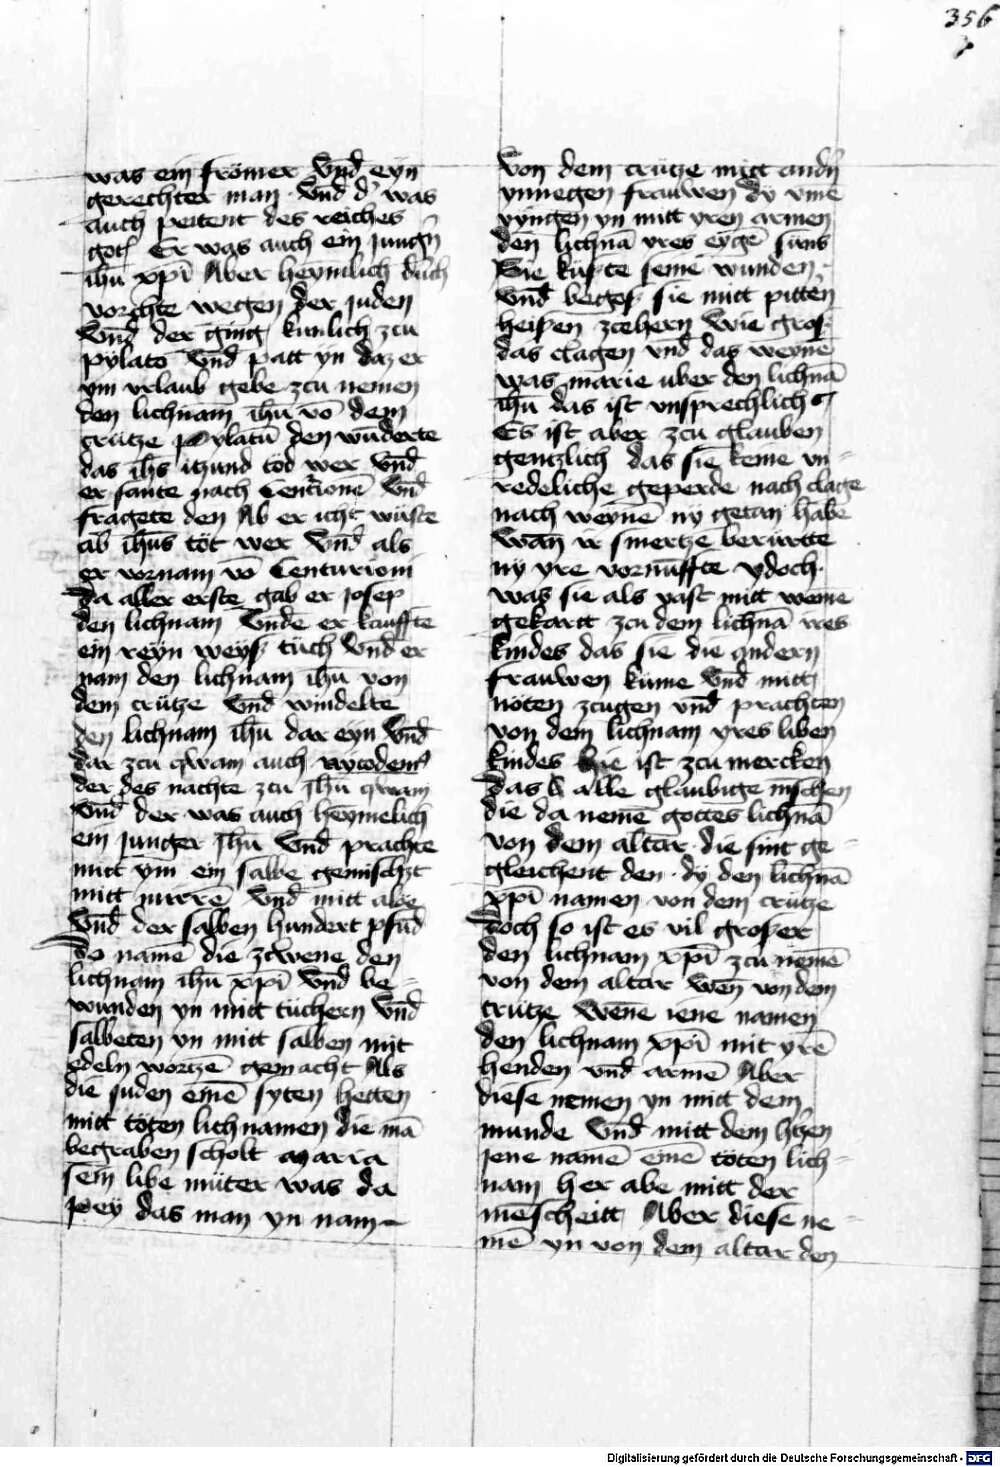 356
was ein frömer Vnd eyn
gerechter man · Vnd d' was
auch peitent des reiches
gotꝭ Er was auch ein jungn̄
ih̄u xp̄i Aber heymlich durch
vorchte wegen der juden
Vnd der ging kunlich zcu
pylato Vnd patt yn daz er
ym vrlaub gebe zcu nemen
den lichnam ih̄u vō dem
crütze pylatū den wūderte
das ih̄s itzund tod wer Vnd
er sante nach Centrionē Vnd
fragete den Ab er icht wüste
ab ih̄us töt wer Vnd als
er vornam vō Centurioni
da aller erste gab er josep
den lichnam Vnde er kauffte
ein reyn weyß tüch Vnd er
nam den lichnam ih̄u von
dem crütze Vnd windelte
den lichnam ih̄u dar eyn Vnd
dar zcu qwam auch nycodemꝰ
der des nachte zcu ih̄u qwam
Vnd der was auch heymelich
ein junger jh̄u Vnd prachte
mitt ym ein salbe gemischt
mitt mirrē Vnd mitt aloe
Vnd der salben hundert pfūd
Do namē die zcwene den
lichnam ih̄u xp̄i Vnd be-
wunden yn mitt tüchern Vnd
salbeten yn mitt salben mit
edeln wortzē gemacht Als
die juden einē syten hetten
mitt töten lichnamen die mā
begraben scholt maria
sein libe müter was da
pey das man yn nam
Von dem crütze mitt andn̄
ynnegen frauwen dy vmē
vyngen yn mitt yren armen
den lichnā yres eygē suns
Sie küste seine wunden
Vnd begoß sie mitt pitten
heißen zcehern Wie groß
das clagen vnd das weynē
was marie uber den lichnā
ih̄u das ist vnsprechlich
Es ist aber zcu glauben
gentzlich das sie keine vn-
redeliche geperde nach clage
nach weynē ny getan habe
Wan yr smertze berurtte
ny yre vornūffte ydoch
was sie als vast mitt weine
gekartt zcu dem lichnā yres
kindes das sie die andern
frauwen küme Vnd mitt
nöten zcugen vnd prachten
von dem lichnam yres liben
kindes Hie ist zcu mercken
das alle glaubige mēschen
die da nemē gottes lichnā
von dem altar · die sint ge-
gleichent den · dy den lichnā
xp̄i namen von dem crütze
Doch so ist es vil großer
den lichnam xp̄i zcu nemē
von dem altar wen von dem
crütze Wēne iene namen
den lichnam xp̄i mit yrē
henden vnd armē Aber
diese nemen yn mitt dem
munde Vnd mitt dem h'tzen
jene namē einē töten lich-
nam her abe mitt der
mēscheitt Aber diese ne-
mē yn von dem altar den
Digitalisierung gefördert durch die Deutsche Forschungsgemeinschaft - DFG